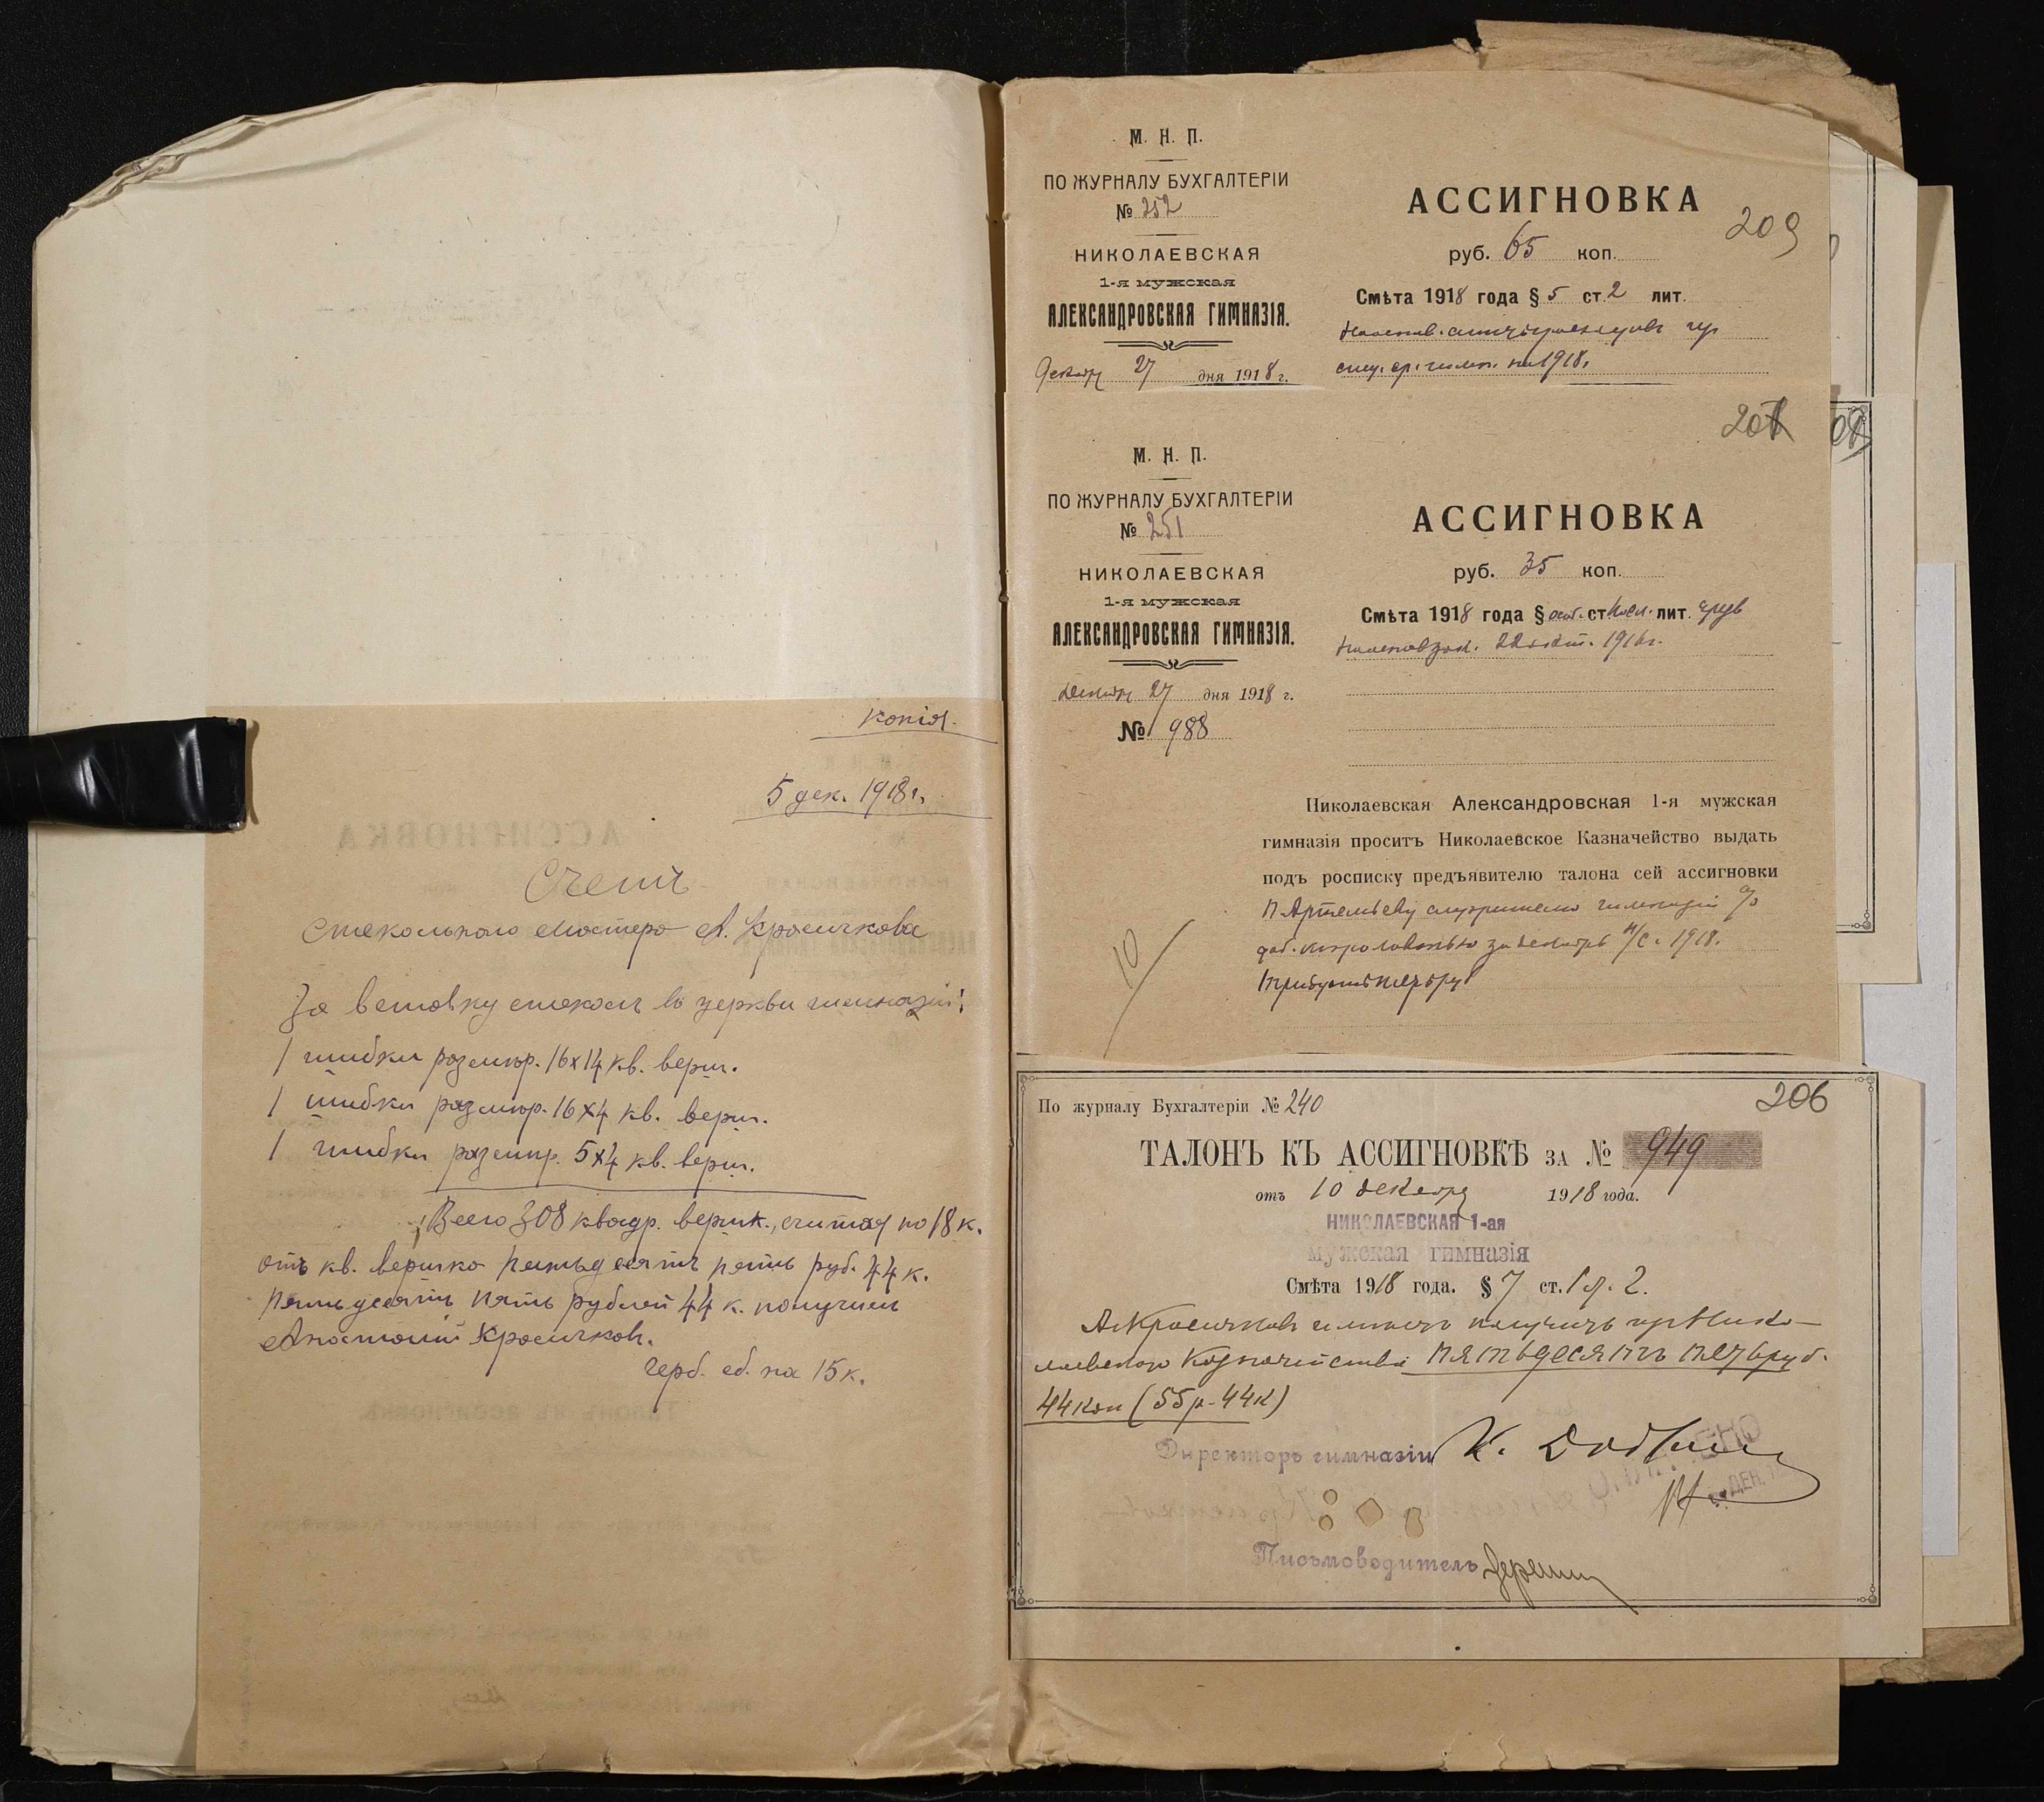 копія.
5 дек. 1918 г.
Счетъ
стекольнаго мастера А. Красичкова
За вставку стеколъ въ церкви гимназіи:
1 шибки размѣр. 16х14 кв. верш.
1 шибки размѣр. 16х4 кв. верш.
1 шибки размѣр. 5х4 кв. верш.
Всего 308 квадр. вершк., считая по 18 к.
отъ кв. вершка пятьдесятъ пять руб. 44 к.
Пятьдесятъ пять рублей 44 к. получилъ
Анатолій Красичковъ.
Герб. сб. на 15 к.
М. Н. П.
ПО ЖУРНАЛУ БУХГАЛТЕРІИ
№ 252
НИКОЛАЕВСКАЯ
1-я мужская
АЛЕКСАНДРОВСКАЯ ГИМНАЗІЯ.
Декабр 27 дня 1918 г.
АССИГНОВКА
209
руб. 65 коп.
Смѣта 1918 года § 5 ст. 2 лит.
спец. ср. гимн. на 1918 г.
207
М. Н. П.
ПО ЖУРНАЛУ БУХГАЛТЕРІИ
№ 251
НИКОЛАЕВСКАЯ
1-я мужская
АЛЕКСАНДРОВСКАЯ ГИМНАЗІЯ.
Декабр 27 дня 1918 г.
№ 988
АССИГНОВКА
руб. 35 коп.
Смѣта 1918 года § ст. лит.
22 окт. 1916 г.
Николаевская Александровская 1-я мужская
гимназія проситъ Николаевское Казначейство выдать
подъ росписку предъявителю талона сей ассигновки
П. Артемьеву служителю гимназіи
за декабрь н/с. 1918.
Тридцать пять руб
10/
206
По журналу Бухгалтеріи № 240
ТАЛОНЪ КЪ АССИГНОВКѢ ЗА № 949
отъ 10 декабря 1918 года.
НИКОЛАЕВСКАЯ 1-ая
мужская гимназія
Смѣта 1918 года. § 7 ст. 1 л. 2.
А. Красичковъ имѣетъ получить изъ Нико-
лаевскаго Казначейства пятьдесятъ пять руб.
44 коп (55 р. 44 к)
Директоръ гимназіи К.
Письмоводитель